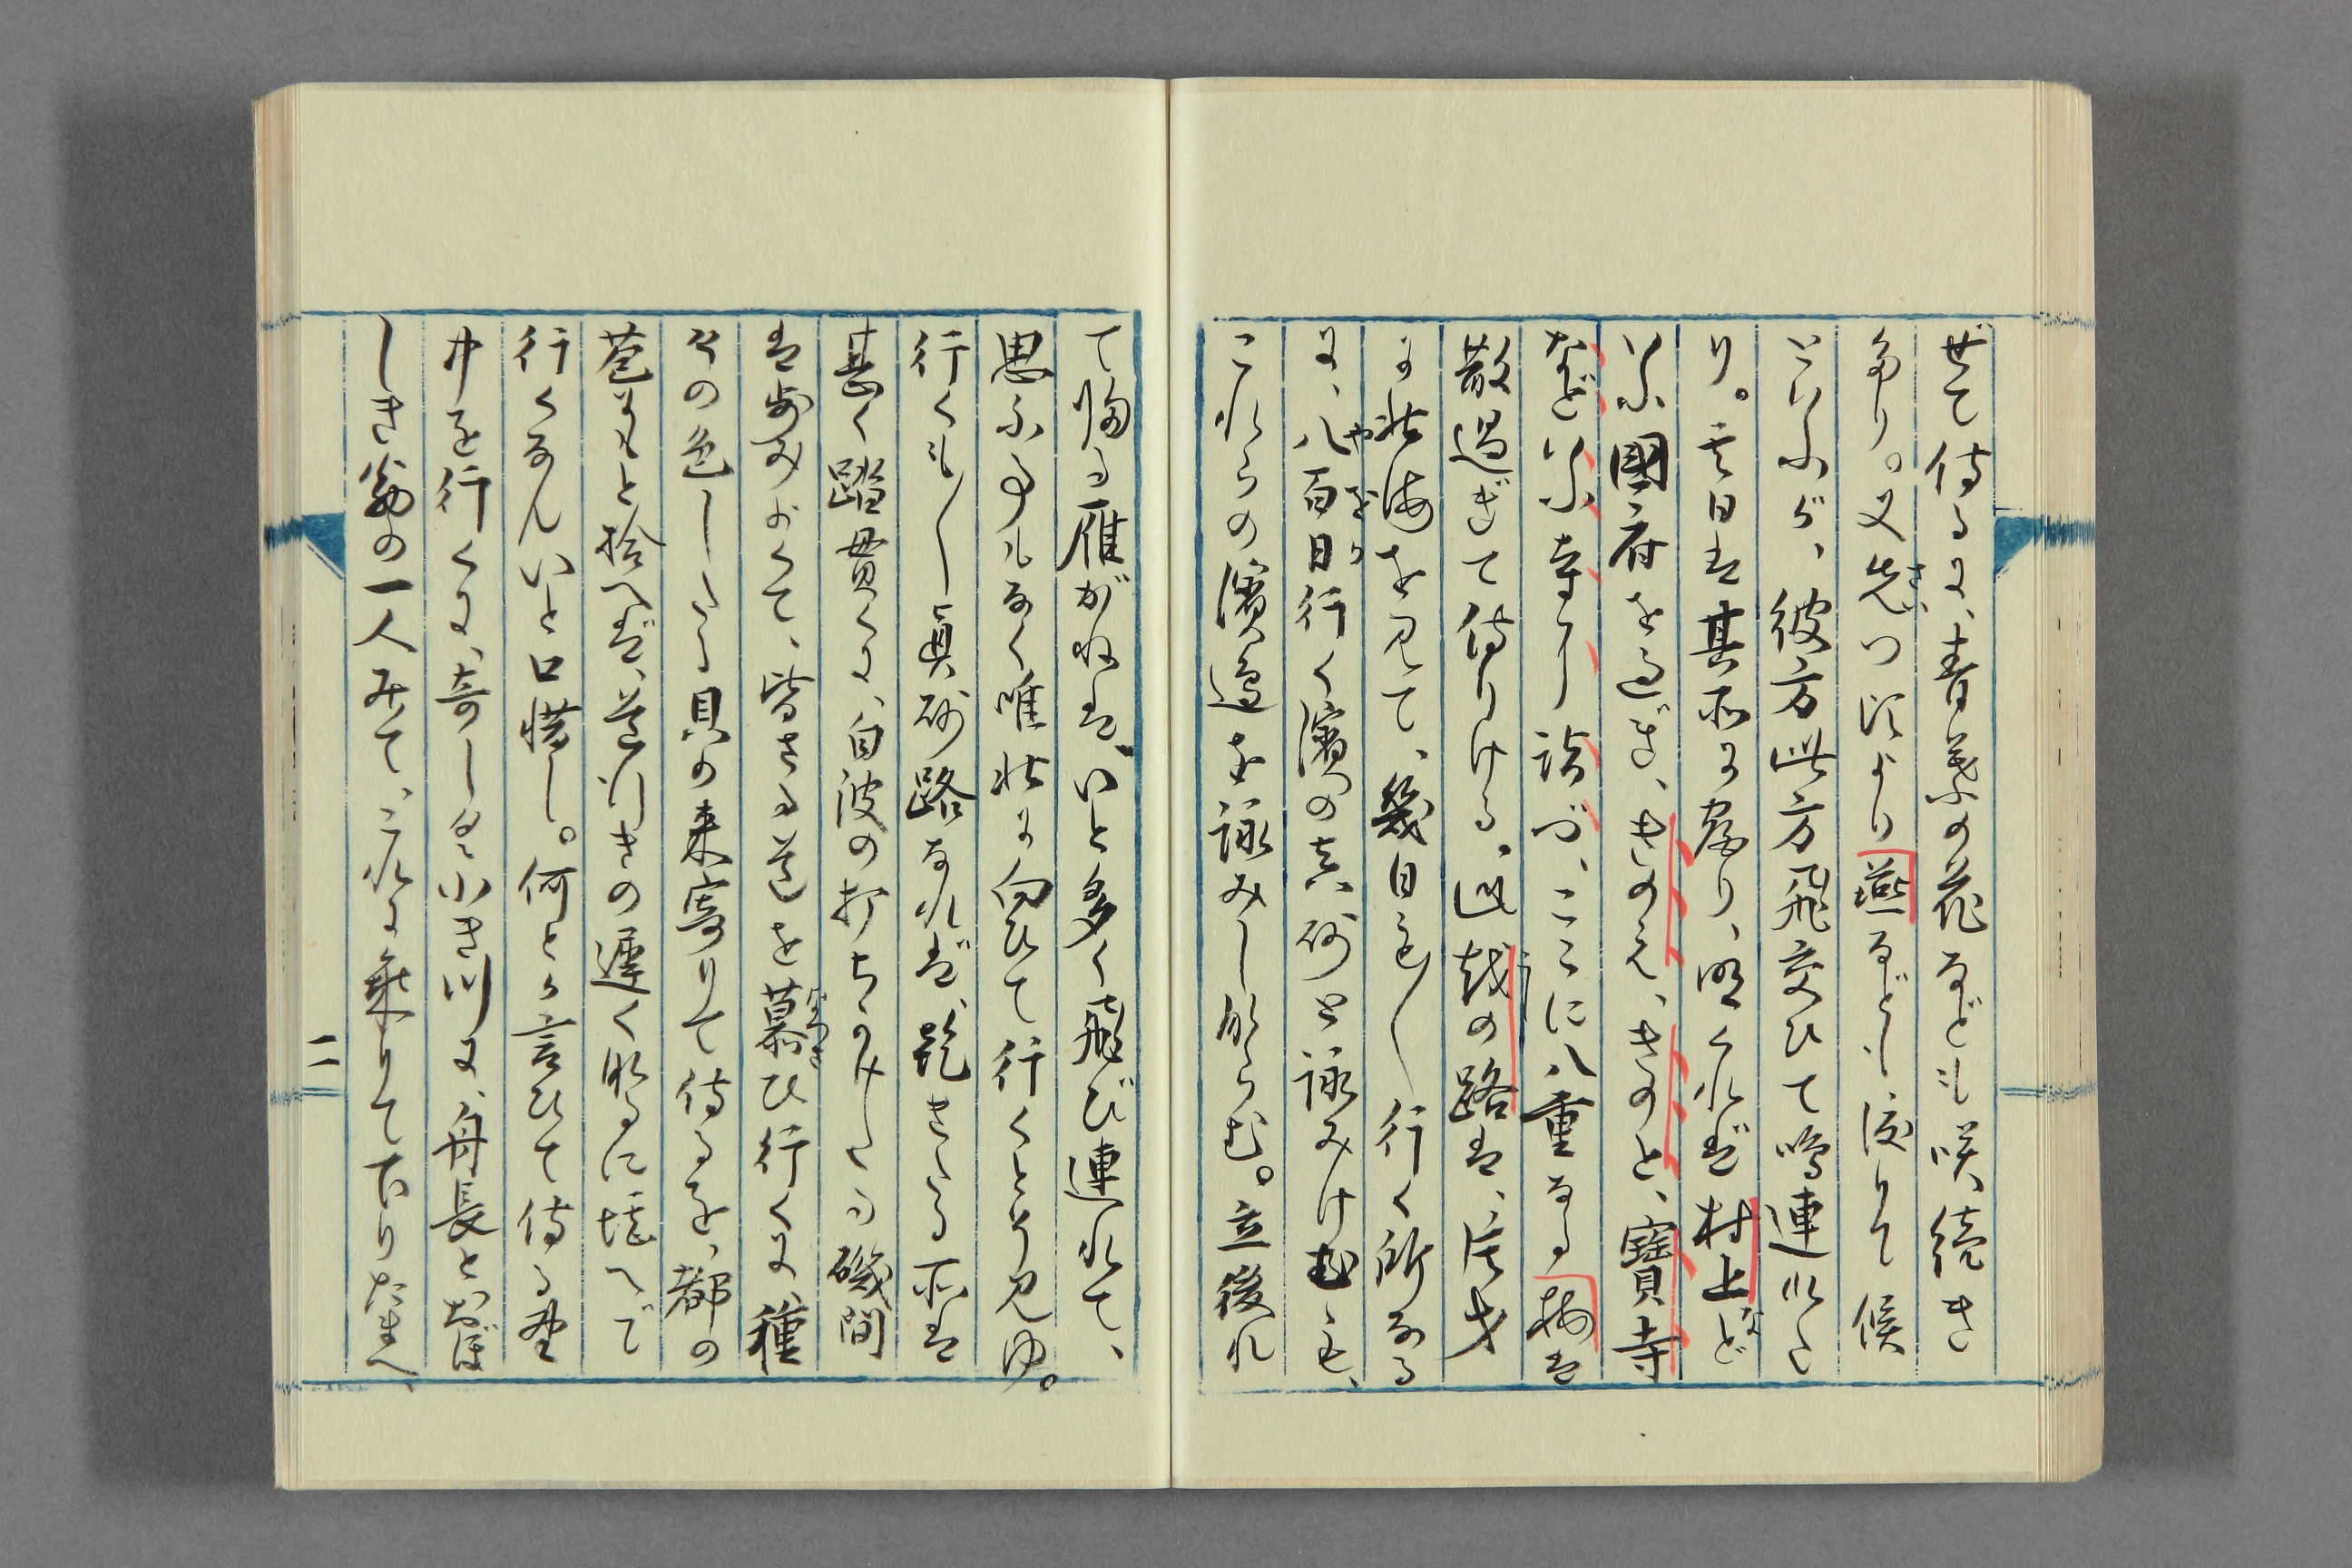 ぜて侍るに、春草の花なども咲、続き
たり。又先つ頃より燕なども渡りて候
といふが、彼方此方飛交ひて鳴連れた
り。其日は其所に宿り、明くれば村上など
いふ國府を過ぎ、きのえ、きのと、寶寺
など いふ寺に詣づ、ここに八重なる梅は
散過ぎて侍りける。此越の路は、片才
に北海を見て、幾日も〳〵行く所なる
に、八百日行く濱の真砂と詠みけむも、
これらの濱邊を詠みし成らむ。立後れ
て帰る雁がねは、いと多く飛び連れて、
思ふ事もなく唯北に向ひて行くとぞ見ゆ。
行くも〳〵眞砂路なれば、乾きたる所は
甚く踏貫くに、白波の打ちかけたる磯間
は歩みよくて、皆さる道を慕ひ行くに、種
々の色したる貝の来寄りて侍るを、都の
苞にもと拾へば、道行きの遅く成るに堪へで
行くなんいと口惜し。何とか言ひて侍る
井を行くに、奇しき小き川に、舟長とおぼ
しき翁の一人みて、これに乗りて下りたまへ、
二